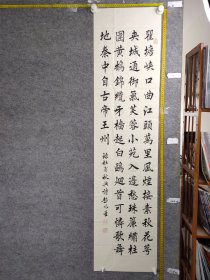 瞿塘峽口曲江頭萬里風煙接素秋花萼
夾城通御氣芙蓉小苑入邊愁珠簾繡柱
圍黃鶴錦纜牙檣起白鷗迴首可憐歌舞
地秦中自古帝王州 錄杜甫秋興詩